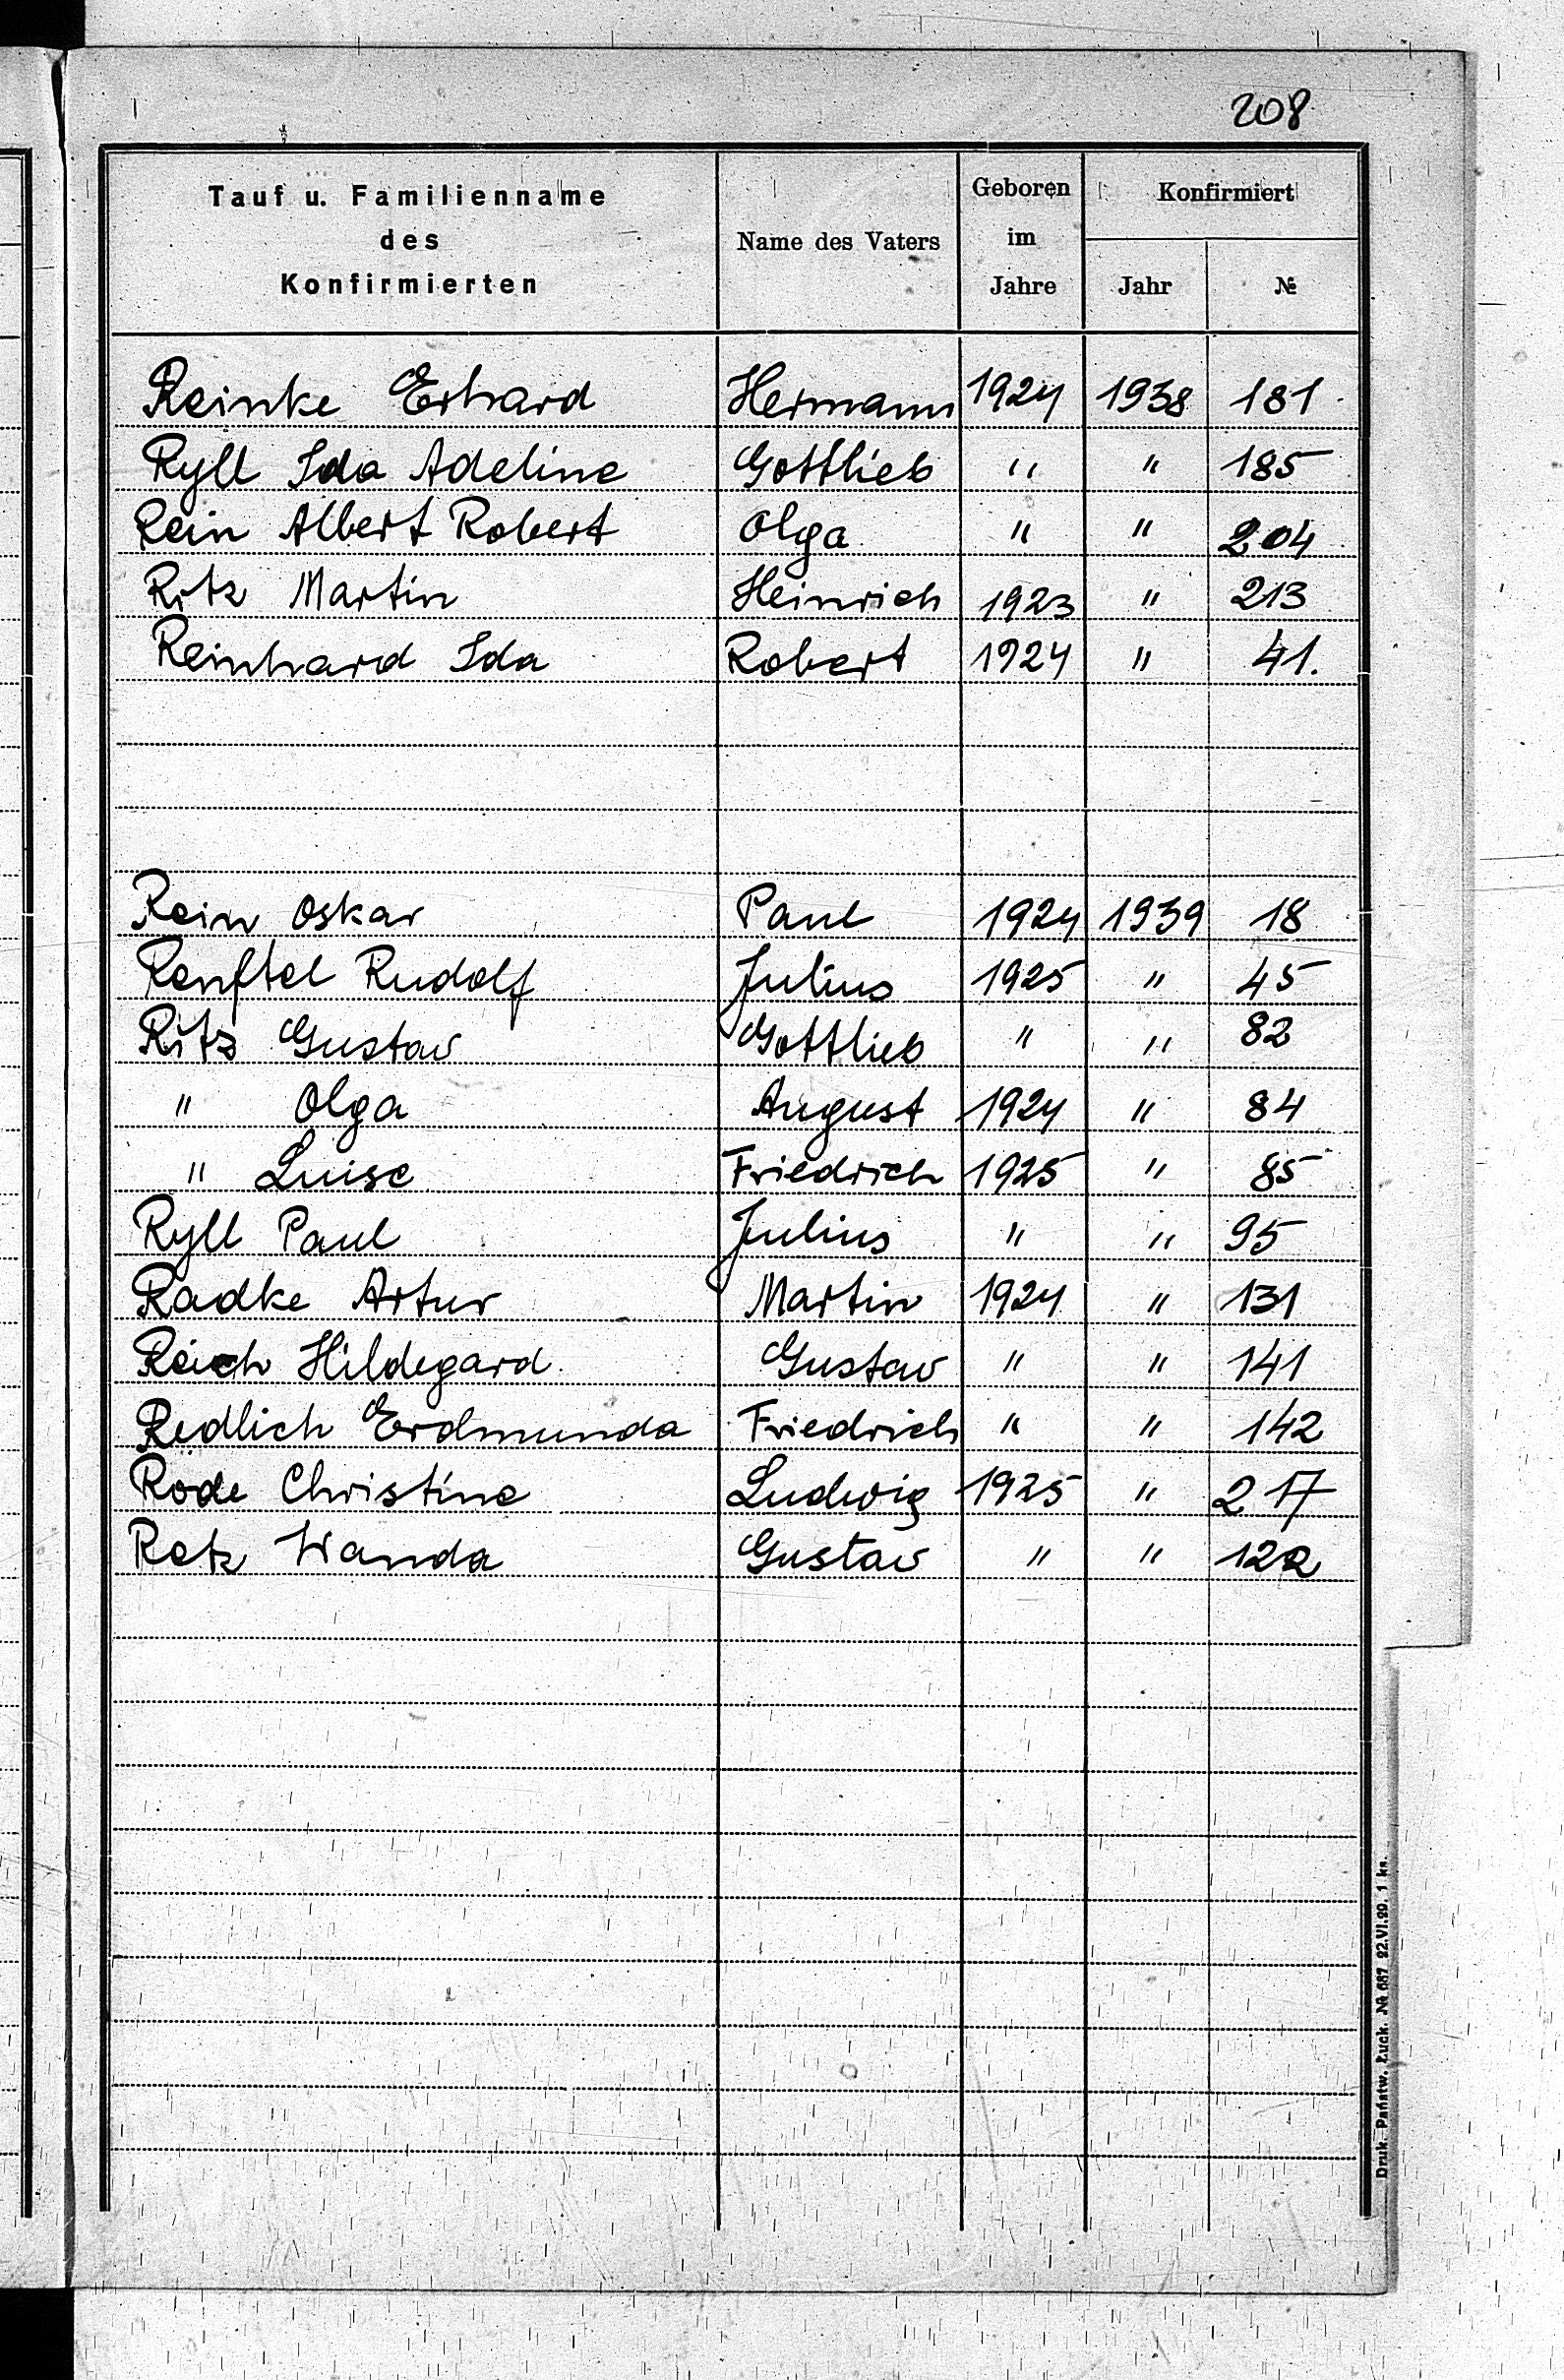 208
Tauf u. Familienname des Konfirmierten | Name des Vaters | Geboren im Jahre | Konfirmiert Jahr | №
Reinke Erhard Hermann 1924 1938 181
Ryll Ida Adeline Gottlieb " " 185
Rein Albert Robert Olga " " 204
Ritz Martin Heinrich 1923 " 213
Reinhard Ida Robert 1924 " 41.
Rein Oskar Paul 1924 1939 18
Renftel Rudolf Julius 1925 " 45
Ritz Gustav Gottlieb " " 82
" Olga August 1924 " 84
" Luise Friedrich 1925 " 85
Ryll Paul Julius " " 95
Radke Artur Martin 1924 " 131
Reich Hildegard Gustav " " 141
Redlich Erdmunda Friedrich " " 142
Rode Christine Ludwig 1925 " 217
Retz Wanda Gustav " " 122
Druk. Państw. Łuck. № 687 22.VI.29. 1 ks.